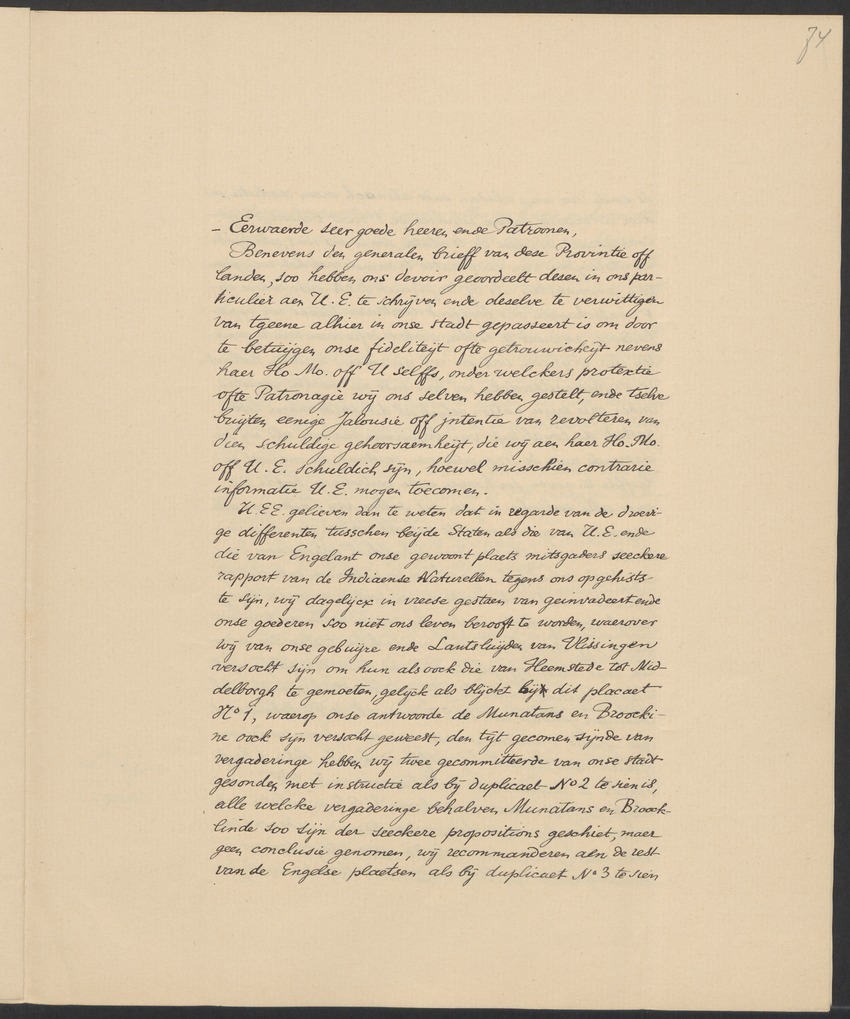 74
– Eerwaerde seer goede heeren ende Patroonen,
Benevens den generalen brieff van dese Provintie off
landen, soo hebben ons devoir geoordeelt desen in ons par-
ticulier aen U. E. te schrijven ende deselve te verwittigen
van tgeene alhier in onse stadt gepasseert is om door
te betuijgen onse fideliteijt ofte getrouwicheijt nevens
haer Ho. Mo. off U selffs, onder welckers protextie
ofte Patronagie wij ons selven hebben gestelt, ende tselve
buijten eenige Jalousie off jntentie van revolteren van
dien schuldige gehoorsaemheijt, die wij aen haer Ho. Mo.
off U. E. schuldich sijn, hoewel misschien contrarie
informatie U. E. mogen toecomen.
U. EE. gelieven dan te weten dat in regarde van de droevi-
ge differenten tusschen beijde Staten als die van U. E. ende
die van Engelant onse gewoont plaets mitsgaders seeckere
rapport van de Indiaense Naturellen tegens ons opgehists
te sijn, wij dagelijcx in vreese gestaen van geinvadeert ende
onse goederen soo niet ons leven berooft te worden, waerover
wij van onse gebuijre ende Lantsluijden van Vlissingen
versocht sijn om hun als oock die van Heemstede tot Mid-
delborgh te gemoeten, gelijck als blijckt bij dit placaet
No 1, waerop onse antwoorde de Munatans en Broocki-
ne oock sijn versocht geweest, den tijt gecomen sijnde van
vergaderinge hebben wij twee gecommitteerde van onse stadt
gesonden met instructie als bij duplicaet No 2 te sien is,
alle welcke vergaderinge behalven Munatans en Broock-
linde soo sijn der seeckere propositions geschiet, maer
geen conclusie genomen, wij recommanderen aen de rest
van de Engelse plaetsen als bij duplicaet No 3 te sien